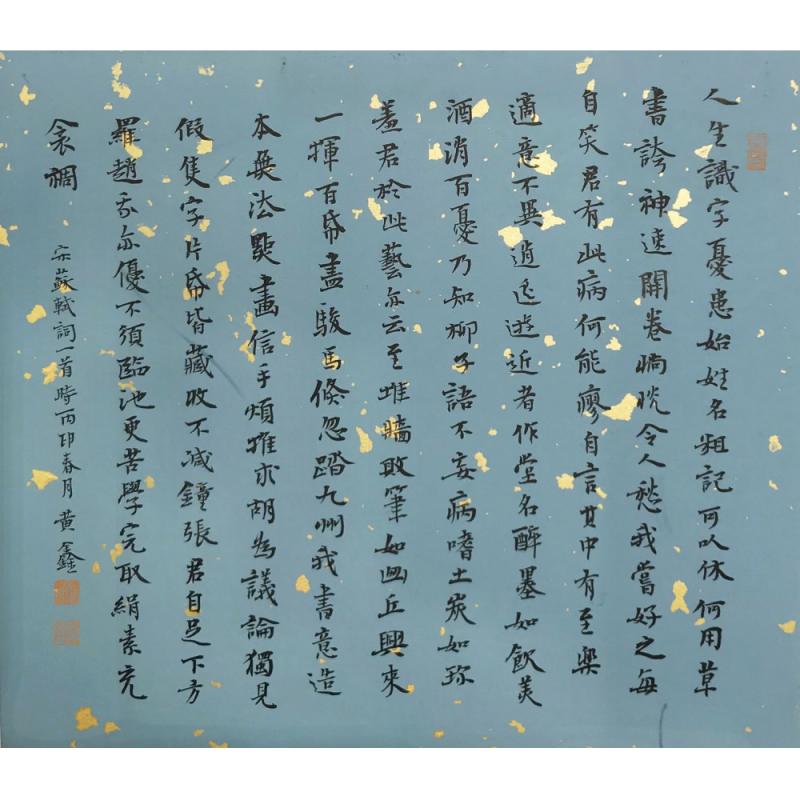 人生識字憂患始姓名粗記可以休何用草
書誇神速開卷惝怳令人愁我嘗好之每
自笑君有此病何能瘳自言其中有至樂
適意不異逍遙遊近者作堂名醉墨如飲美
酒消百憂乃知柳子語不妄病嗜土炭如珍
羞君於此藝亦云至堆牆敗筆如山丘興來
一揮百帋盡駿馬倏忽踏九州我書意造
本無法點畫信手煩推求胡為議論獨見
假隻字片帋皆藏收不減鐘張君自足下方
羅趙我亦優不須臨池更苦學完取絹素充
衾裯
宋蘇軾詞一首時丙春月黃鑫